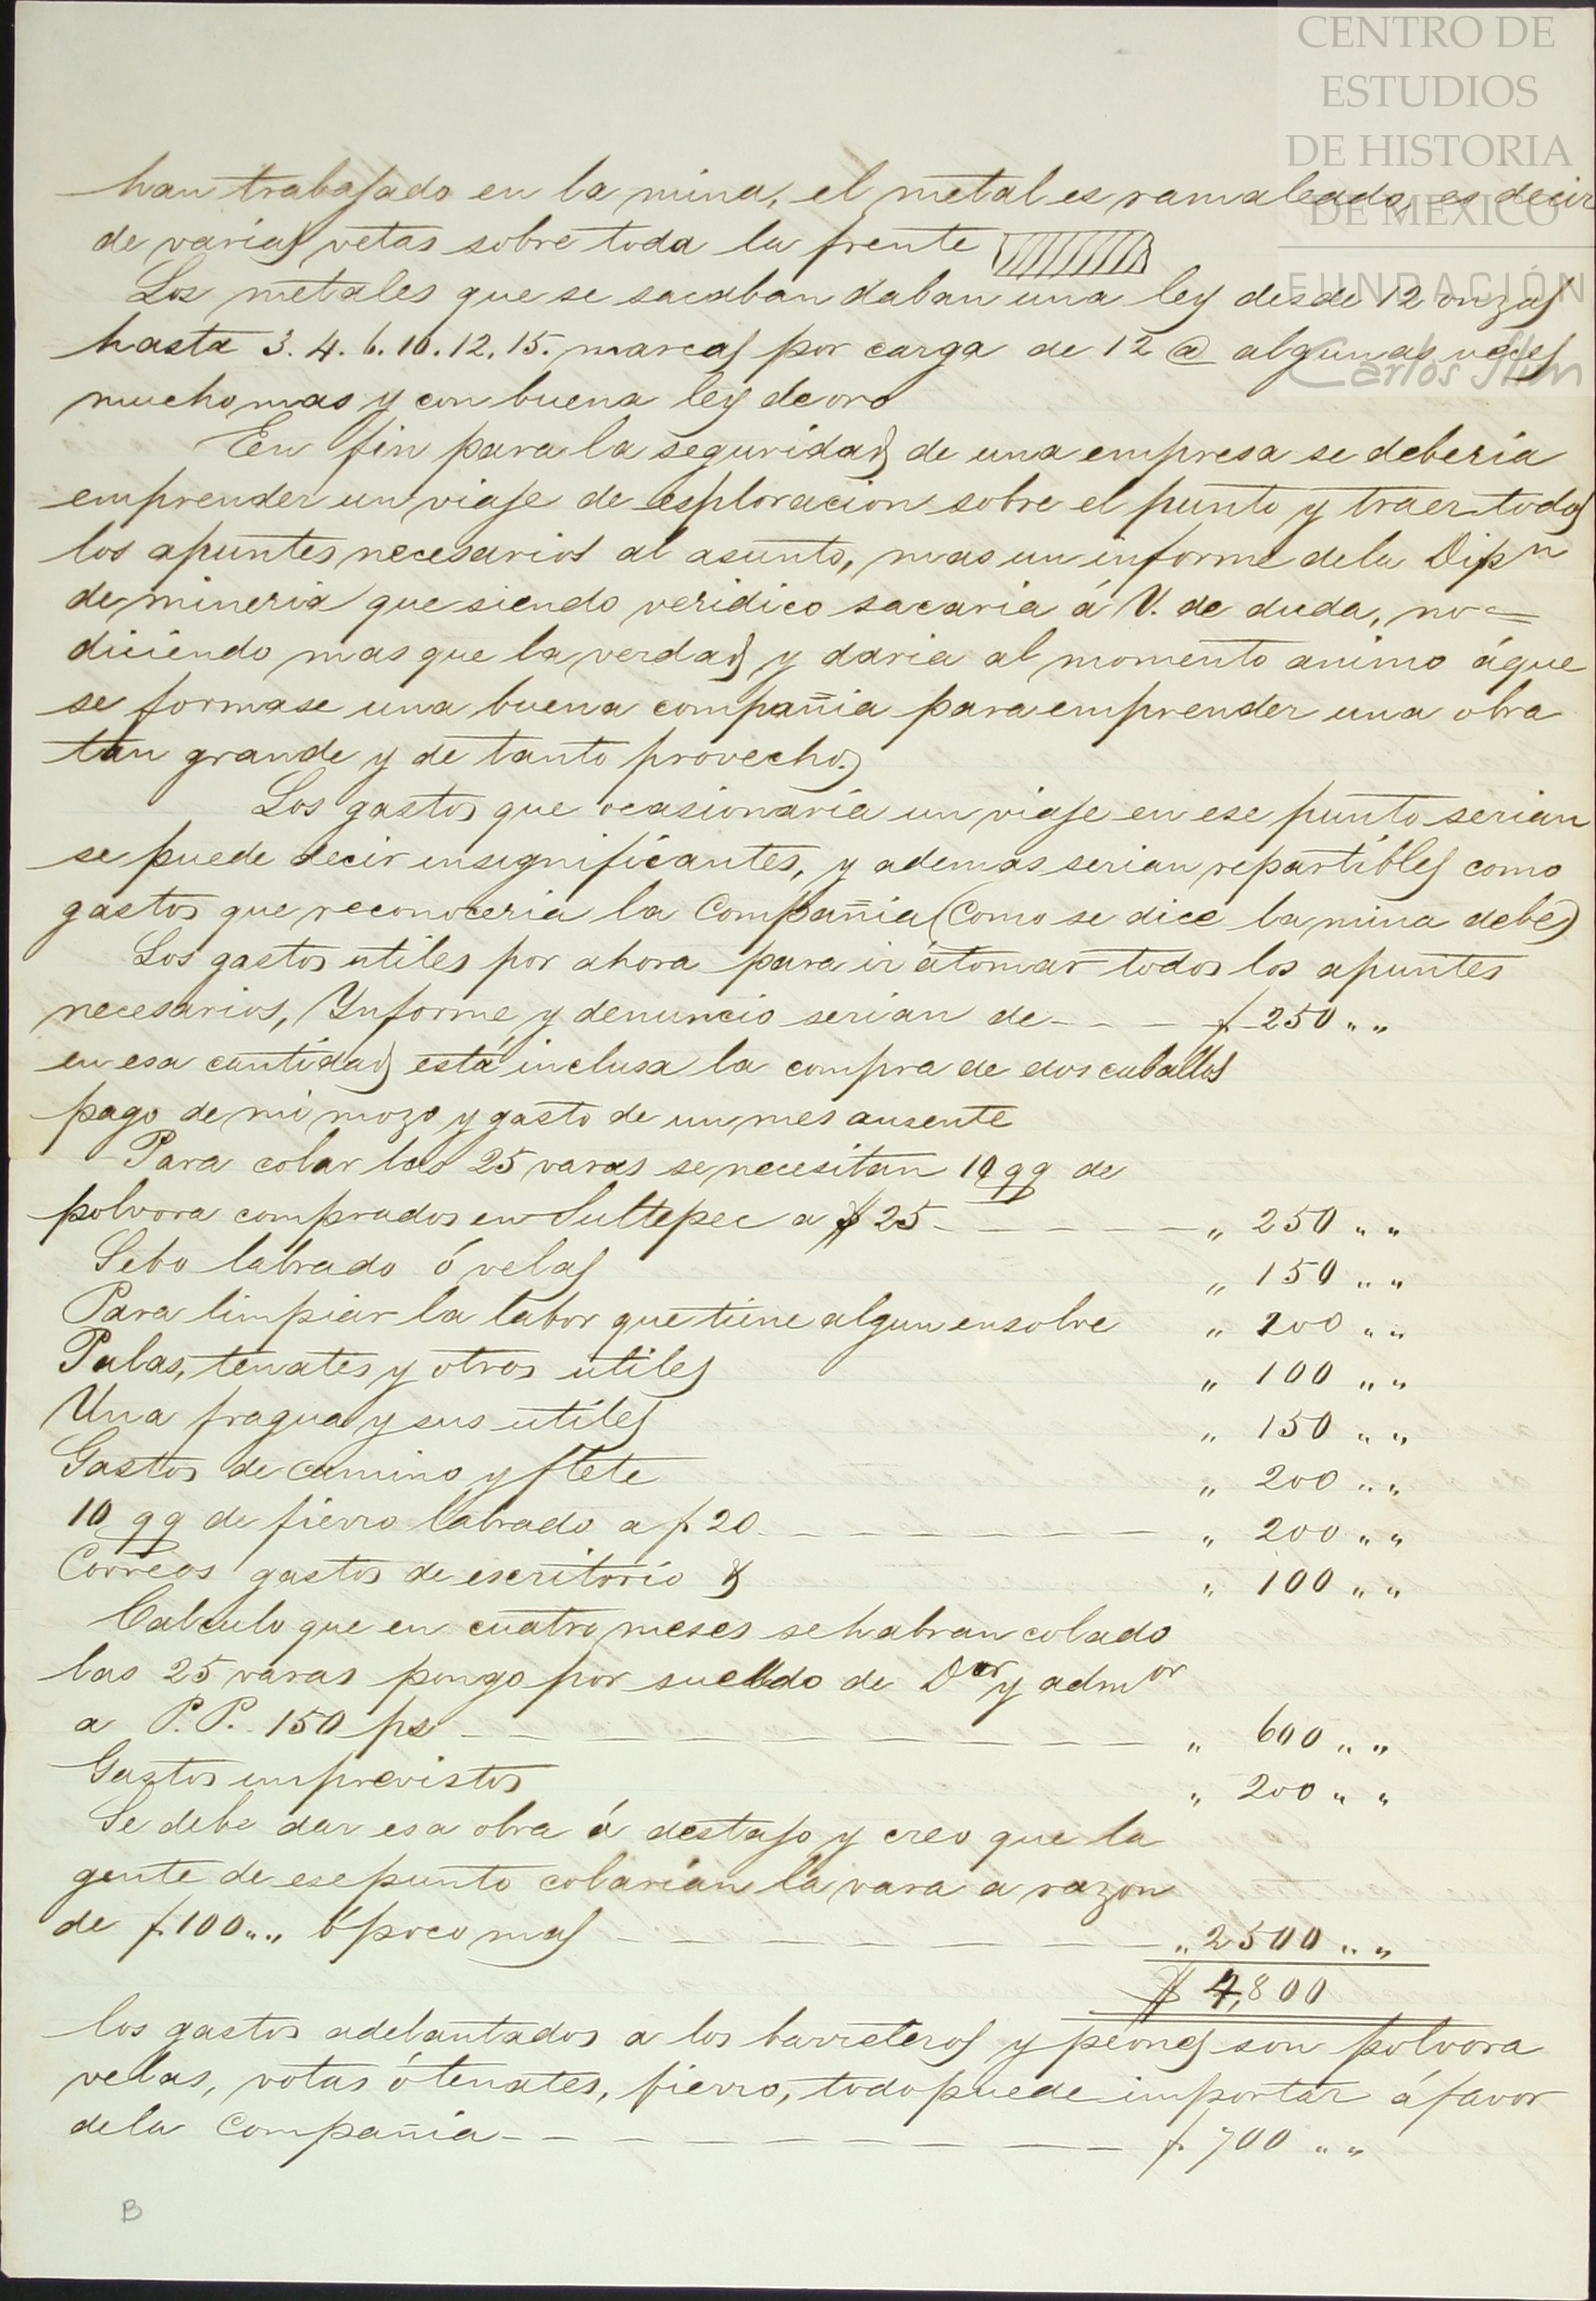 CENTRO DE
ESTUDIOS
DE HISTORIA
DE MÉXICO
FUNDACIÓN
Carlos Slim
han trabajado en la mina, el metal es ramaleado, es decir
de varias vetas sobre toda la frente
Los metales que se sacaban daban una ley desde 12 onzas
hasta 3. 4. 6. 10. 12. 15. marcas por carga de 12 @ algunas veces
mucho mas y con buena ley de oro
En fin para la seguridad de una empresa se deberia
emprender un viaje de esploracion sobre el punto y traer todos
los apuntes necesarios al asunto, mas un informe de la Dipn
de mineria que siendo veridico sacaria á V. de duda, no =
diciendo mas que la verdad y daria al momento animo á que
se formase una buena compañia para emprender una obra
tan grande y de tanto provecho.
Los gastos que ocasionaria un viaje en ese punto serian
se puede decir insignificantes, y ademas serian repartibles como
gastos que reconoceria la Compañia (Como se dice la mina debe)
Los gastos utiles por ahora para ir á tomar todos los apuntes
necesarios, Ynforme y denuncio serian de - - - $ 250 „ „
en esa cantidad está inclusa la compra de dos caballos
pago de mi mozo y gasto de un mes ausente
Para colar las 25 varas se necesitan 10 qq de
polvora comprados en Sultepec a $ 25 - - - - - „ 250 „ „
Sebo labrado ó velas „ 150 „ „
Para limpiar la labor que tiene algun ensolve „ 200 „ „
Palas, tenates y otros utiles „ 100 „ „
Una fragua y sus utiles „ 150 „ „
Gastos de camino y flete „ 200 „ „
10 qq de fierro labrado a $ 20 - - - - - - - „ 200 „ „
Correos gastos de escritorio & „ 100 „ „
Calculo que en cuatro meses se habran colado
las 25 varas pongo por sueldo de Dor y admor
a P.P. 150 ps - - - - - - - - - - „ 600 „ „
Gastos imprevistos „ 200 „ „
Se debe dar esa obra á destajo y creo que la
gente de ese punto colarian la vara a razon
de $ 100 „ „ ó poco mas - - - - - - - „ 2500 „ „
$ 4,800
los gastos adelantados a los barreteros y peones son polvora
velas, votas ó tenates, fierro, todo puede importar á favor
de la Compañia - - - - - - - - - $ 700 „ „
B